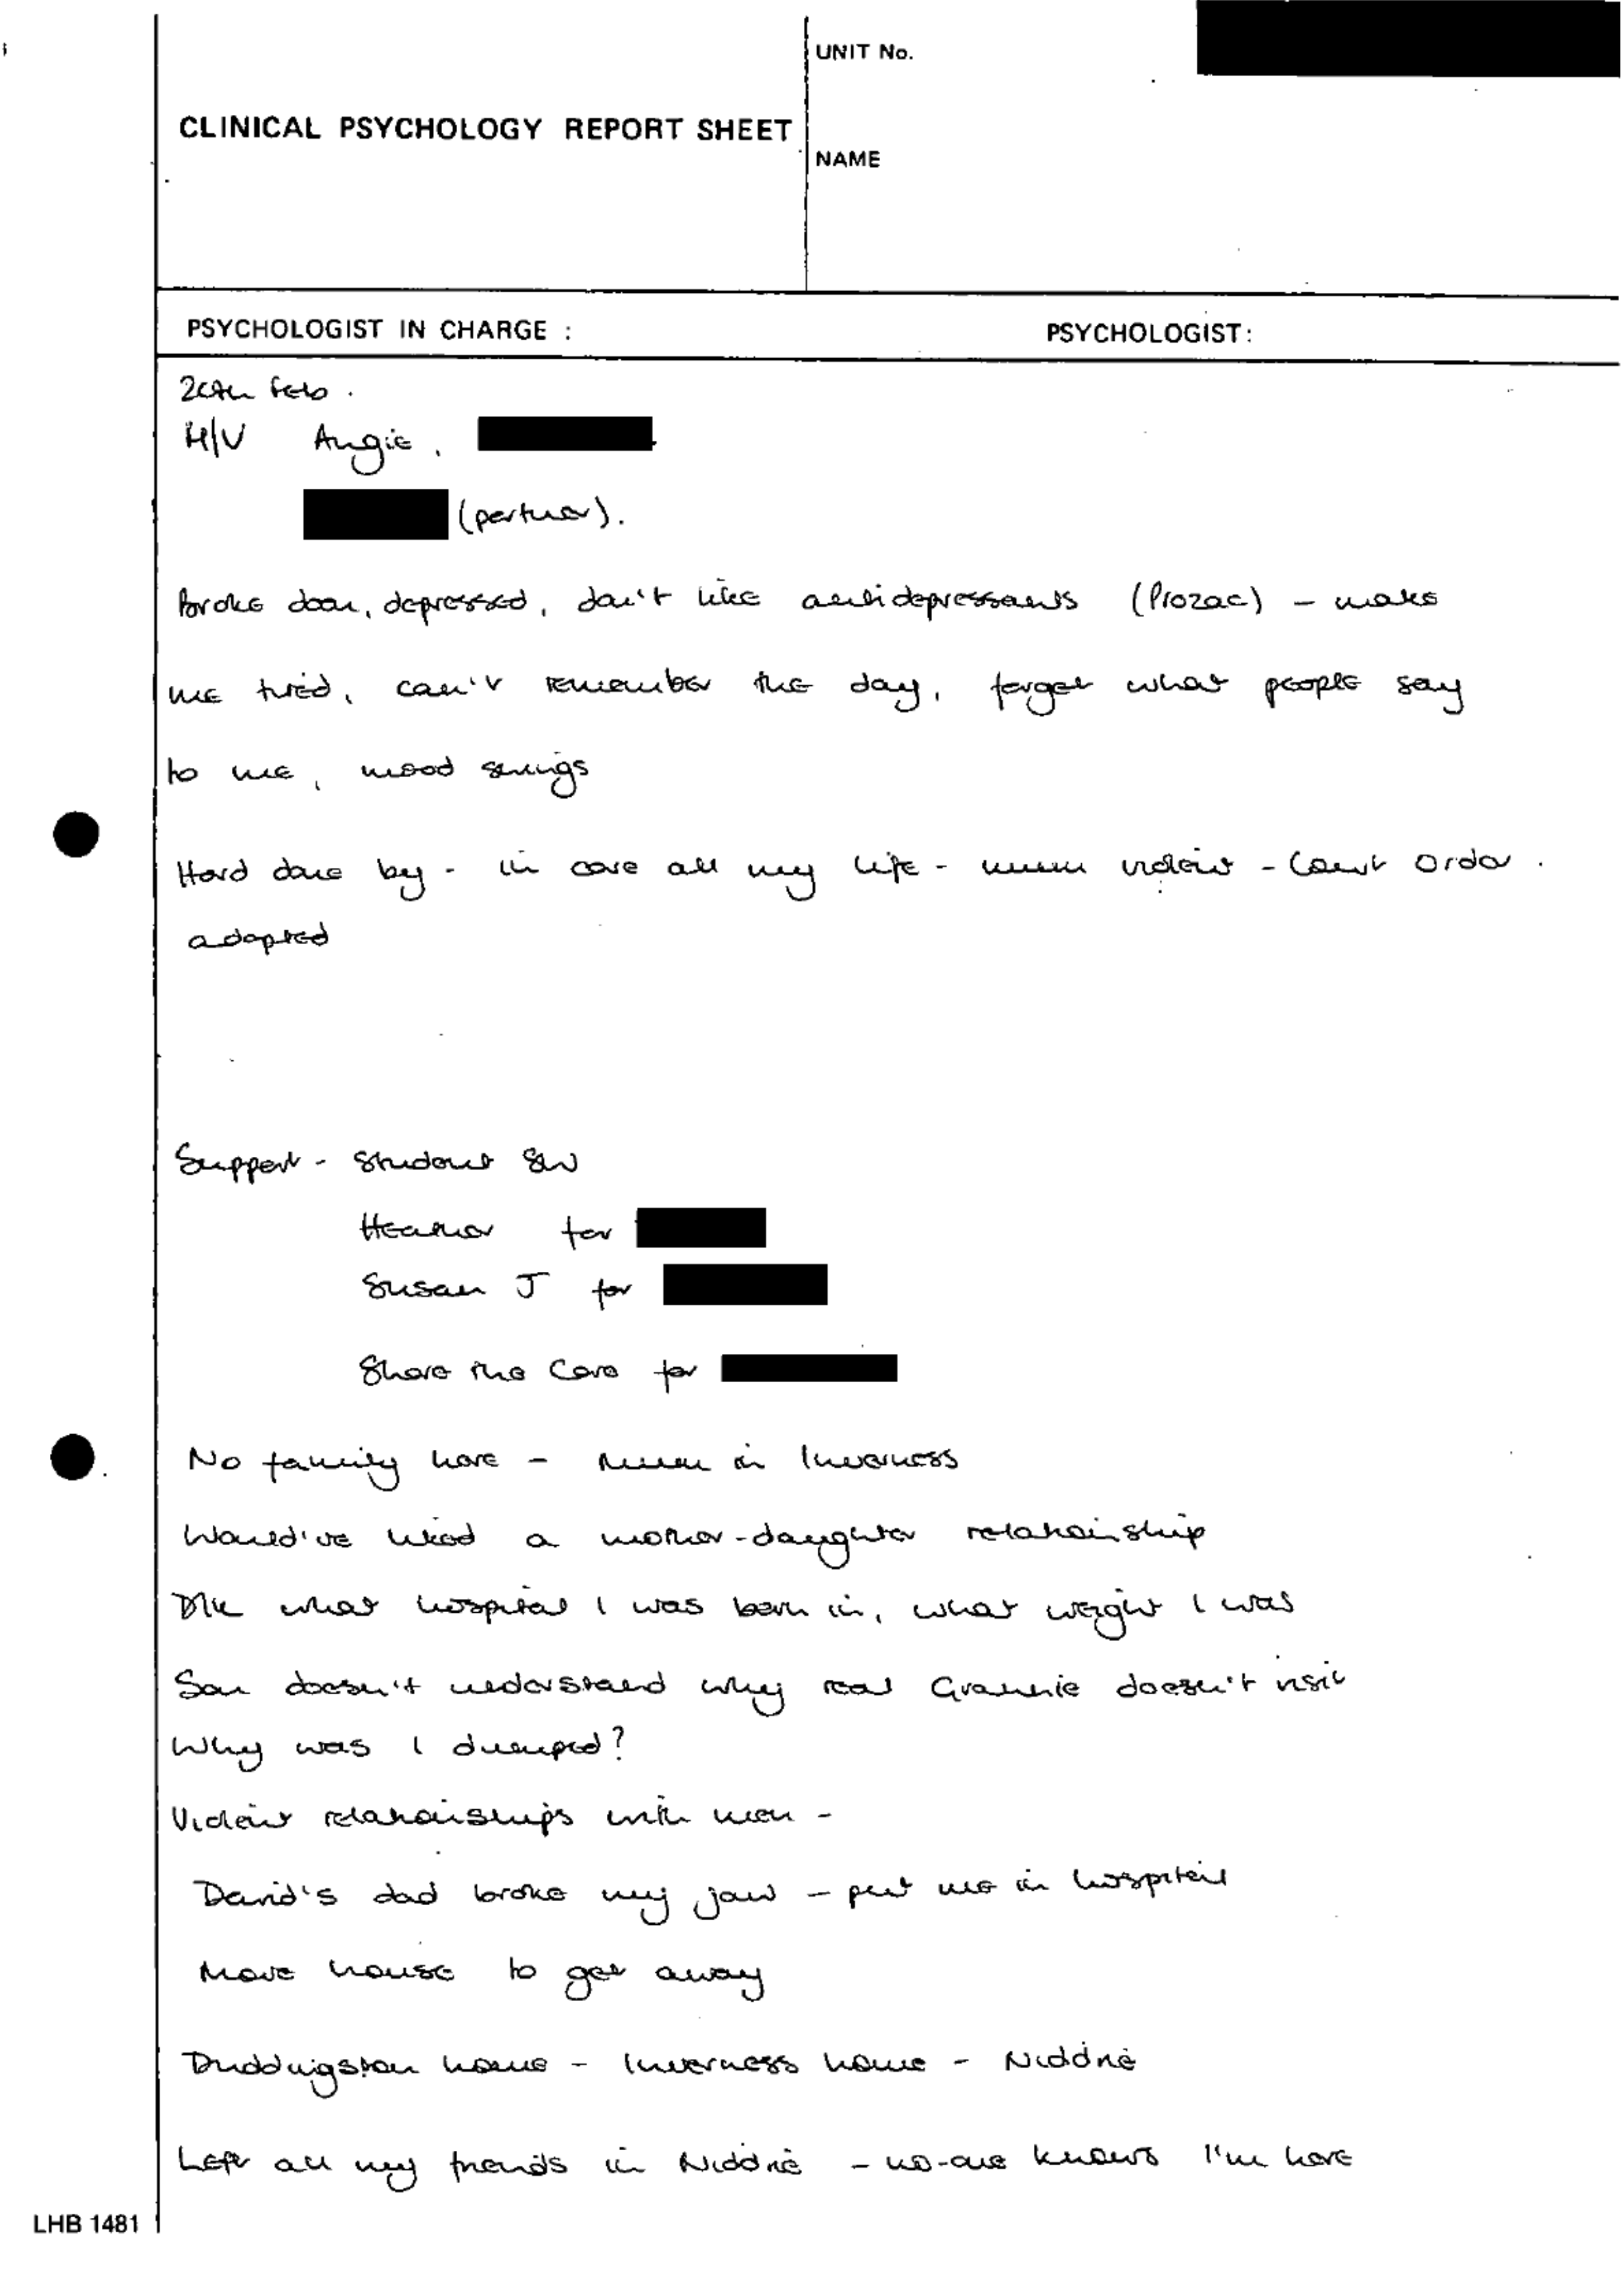 UNIT No.
CLINICAL PSYCHOLOGY REPORT SHEET
NAME
PSYCHOLOGIST IN CHARGE :
PSYCHOLOGIST:
Feb.
H/V Angie,
(partner).
Broke down, depressed, don't like antidepressants (Prozac) - makes
me tired, can't remember the day, forget what people say
to me, mood swings
Hard done by - in care all my life - mum violent - Court Order.
adopted
Support - Student SW
Heather for
Susan J for
Share the Care for
No family here - mum in Inverness
Would've liked a mother-daughter relationship
DK what hospital I was born in, what weight I was
Son doesn't understand why real Grannie doesn't visit
Why was I dumped?
Violent relationships with men -
David's dad broke my jaw - put me in hospital
Move house to get away
Duddingston home - Inverness home - Niddrie
Left all my friends in Niddrie - no-one knows I'm here
LHB 1481